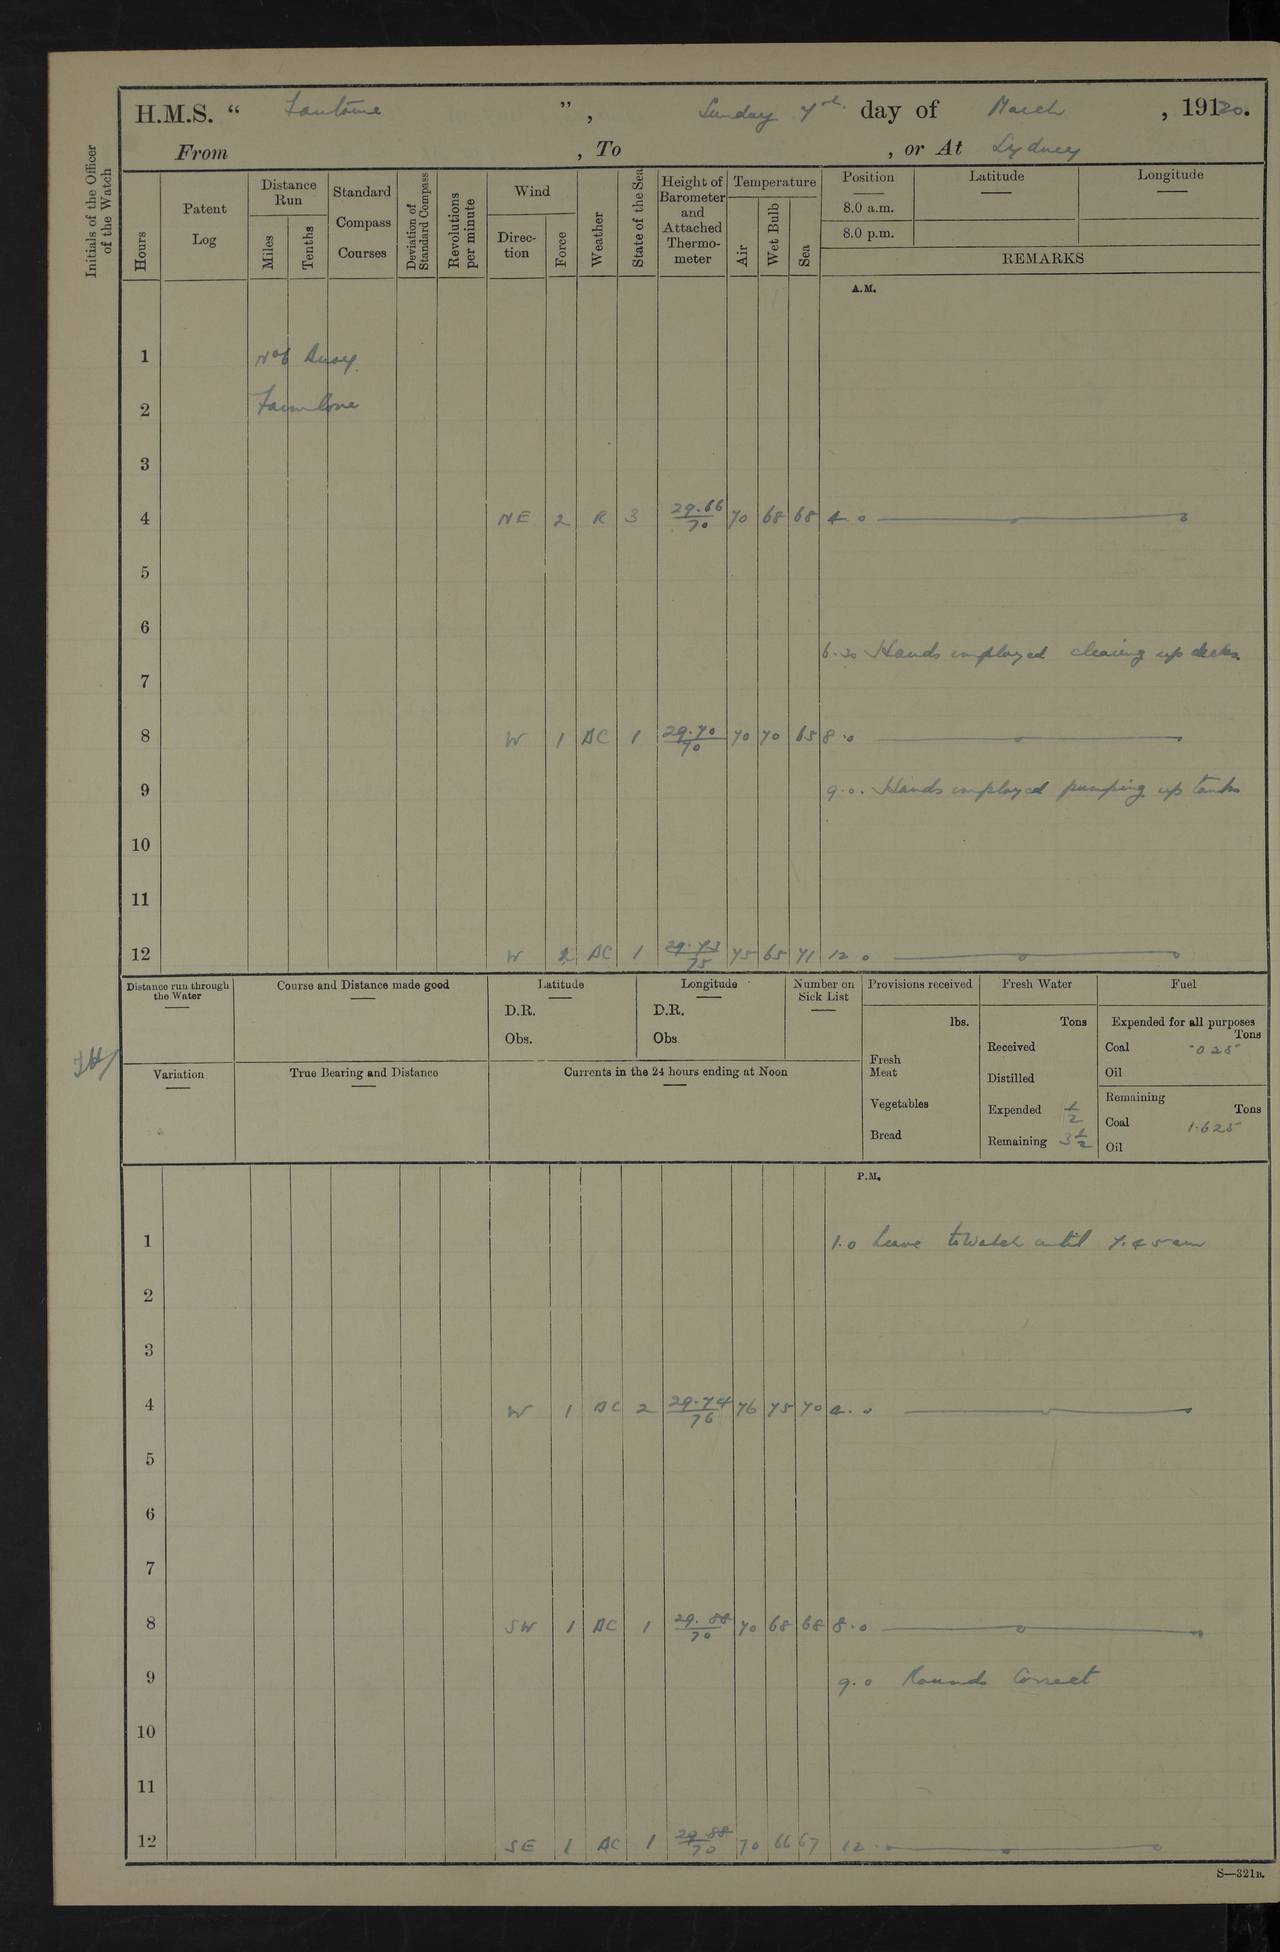 H.M.S. “ Fantome ”, Sunday 7th day of March, 19120.
From , To , or At Sydney
Initials of the Officer of the Watch
Hours
Patent Log
Distance Run
Miles
Tenths
Standard Compass Courses
Deviation of Standard Compass
Revolutions per minute
Wind
Direc-tion
Force
Weather
State of the Sea
Height of Barometer and Attached Thermo-meter
Temperature
Air
Wet Bulb
Sea
Position Latitude Longitude
8.0 a.m.
8.0 p.m.
REMARKS
A.M.
1 No 6 Buoy.
2 Farm Cove
3
4 NE 2 R 3 29.66/70 70 68 68 4.0
5
6
6.30 Hands employed clearing up decks.
7
8 W 1 BC 1 29.70/70 70 70 65 8.0
9 9.0. Hands employed pumping up tanks
10
11
12 W 2 BC 1 29.73/75 75 65 71 12.0
Distance run through the Water
Course and Distance made good
Latitude
D.R.
Obs.
Longitude
D.R.
Obs
Number on Sick List
Provisions received
lbs.
Fresh Meat
Vegetables
Bread
Fresh Water
Tons
Received
Distilled
Expended 1/2
Remaining 3 1/2
Fuel
Expended for all purposes
Tons
Coal ·025
Oil
Remaining
Tons
Coal 1.625
Oil
Variation
True Bearing and Distance
Currents in the 24 hours ending at Noon
P.M.
1 1.0 Leave to Watch until 7.45 am
2
3
4 W 1 BC 2 29.74/76 76 75 70 4.0
5
6
7
8 SW 1 BC 1 29.88/70 70 68 68 8.0
9 9.0 Rounds Correct
10
11
12 SE 1 BC 1 29.88/70 70 66 67 12.
S—321B.